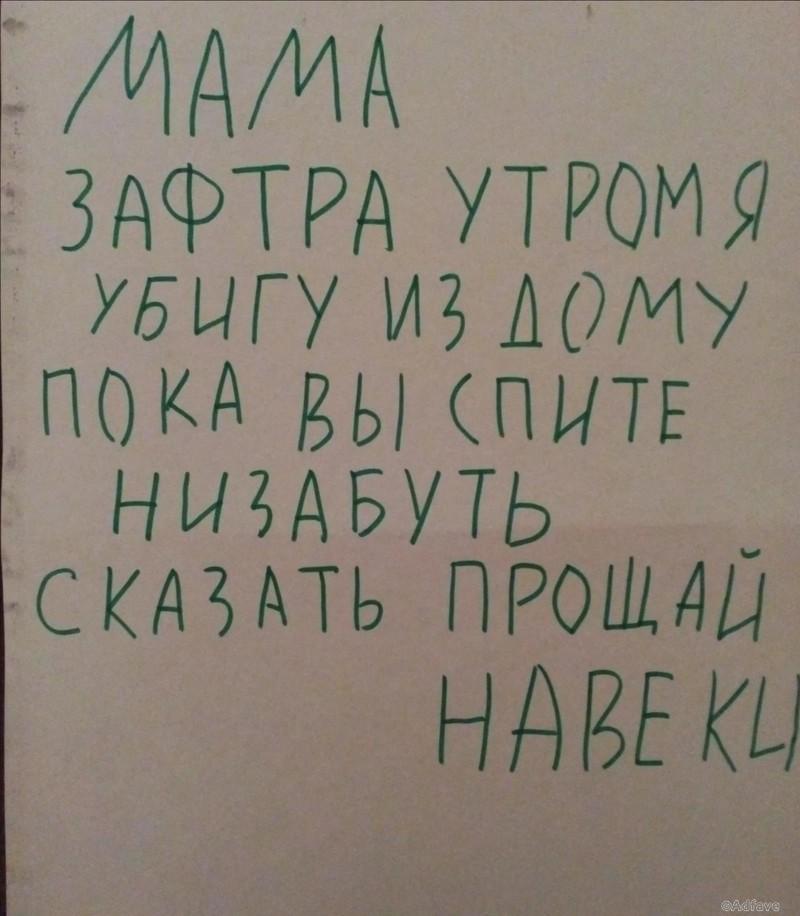 МАМА
ЗАФТРА УТРОМ Я
УБИГУ ИЗ ДОМУ
ПОКА ВЫ СПИТЕ
НИЗАБУТЬ
СКАЗАТЬ ПРОЩАЙ
НАВЕКИ
©Adfave